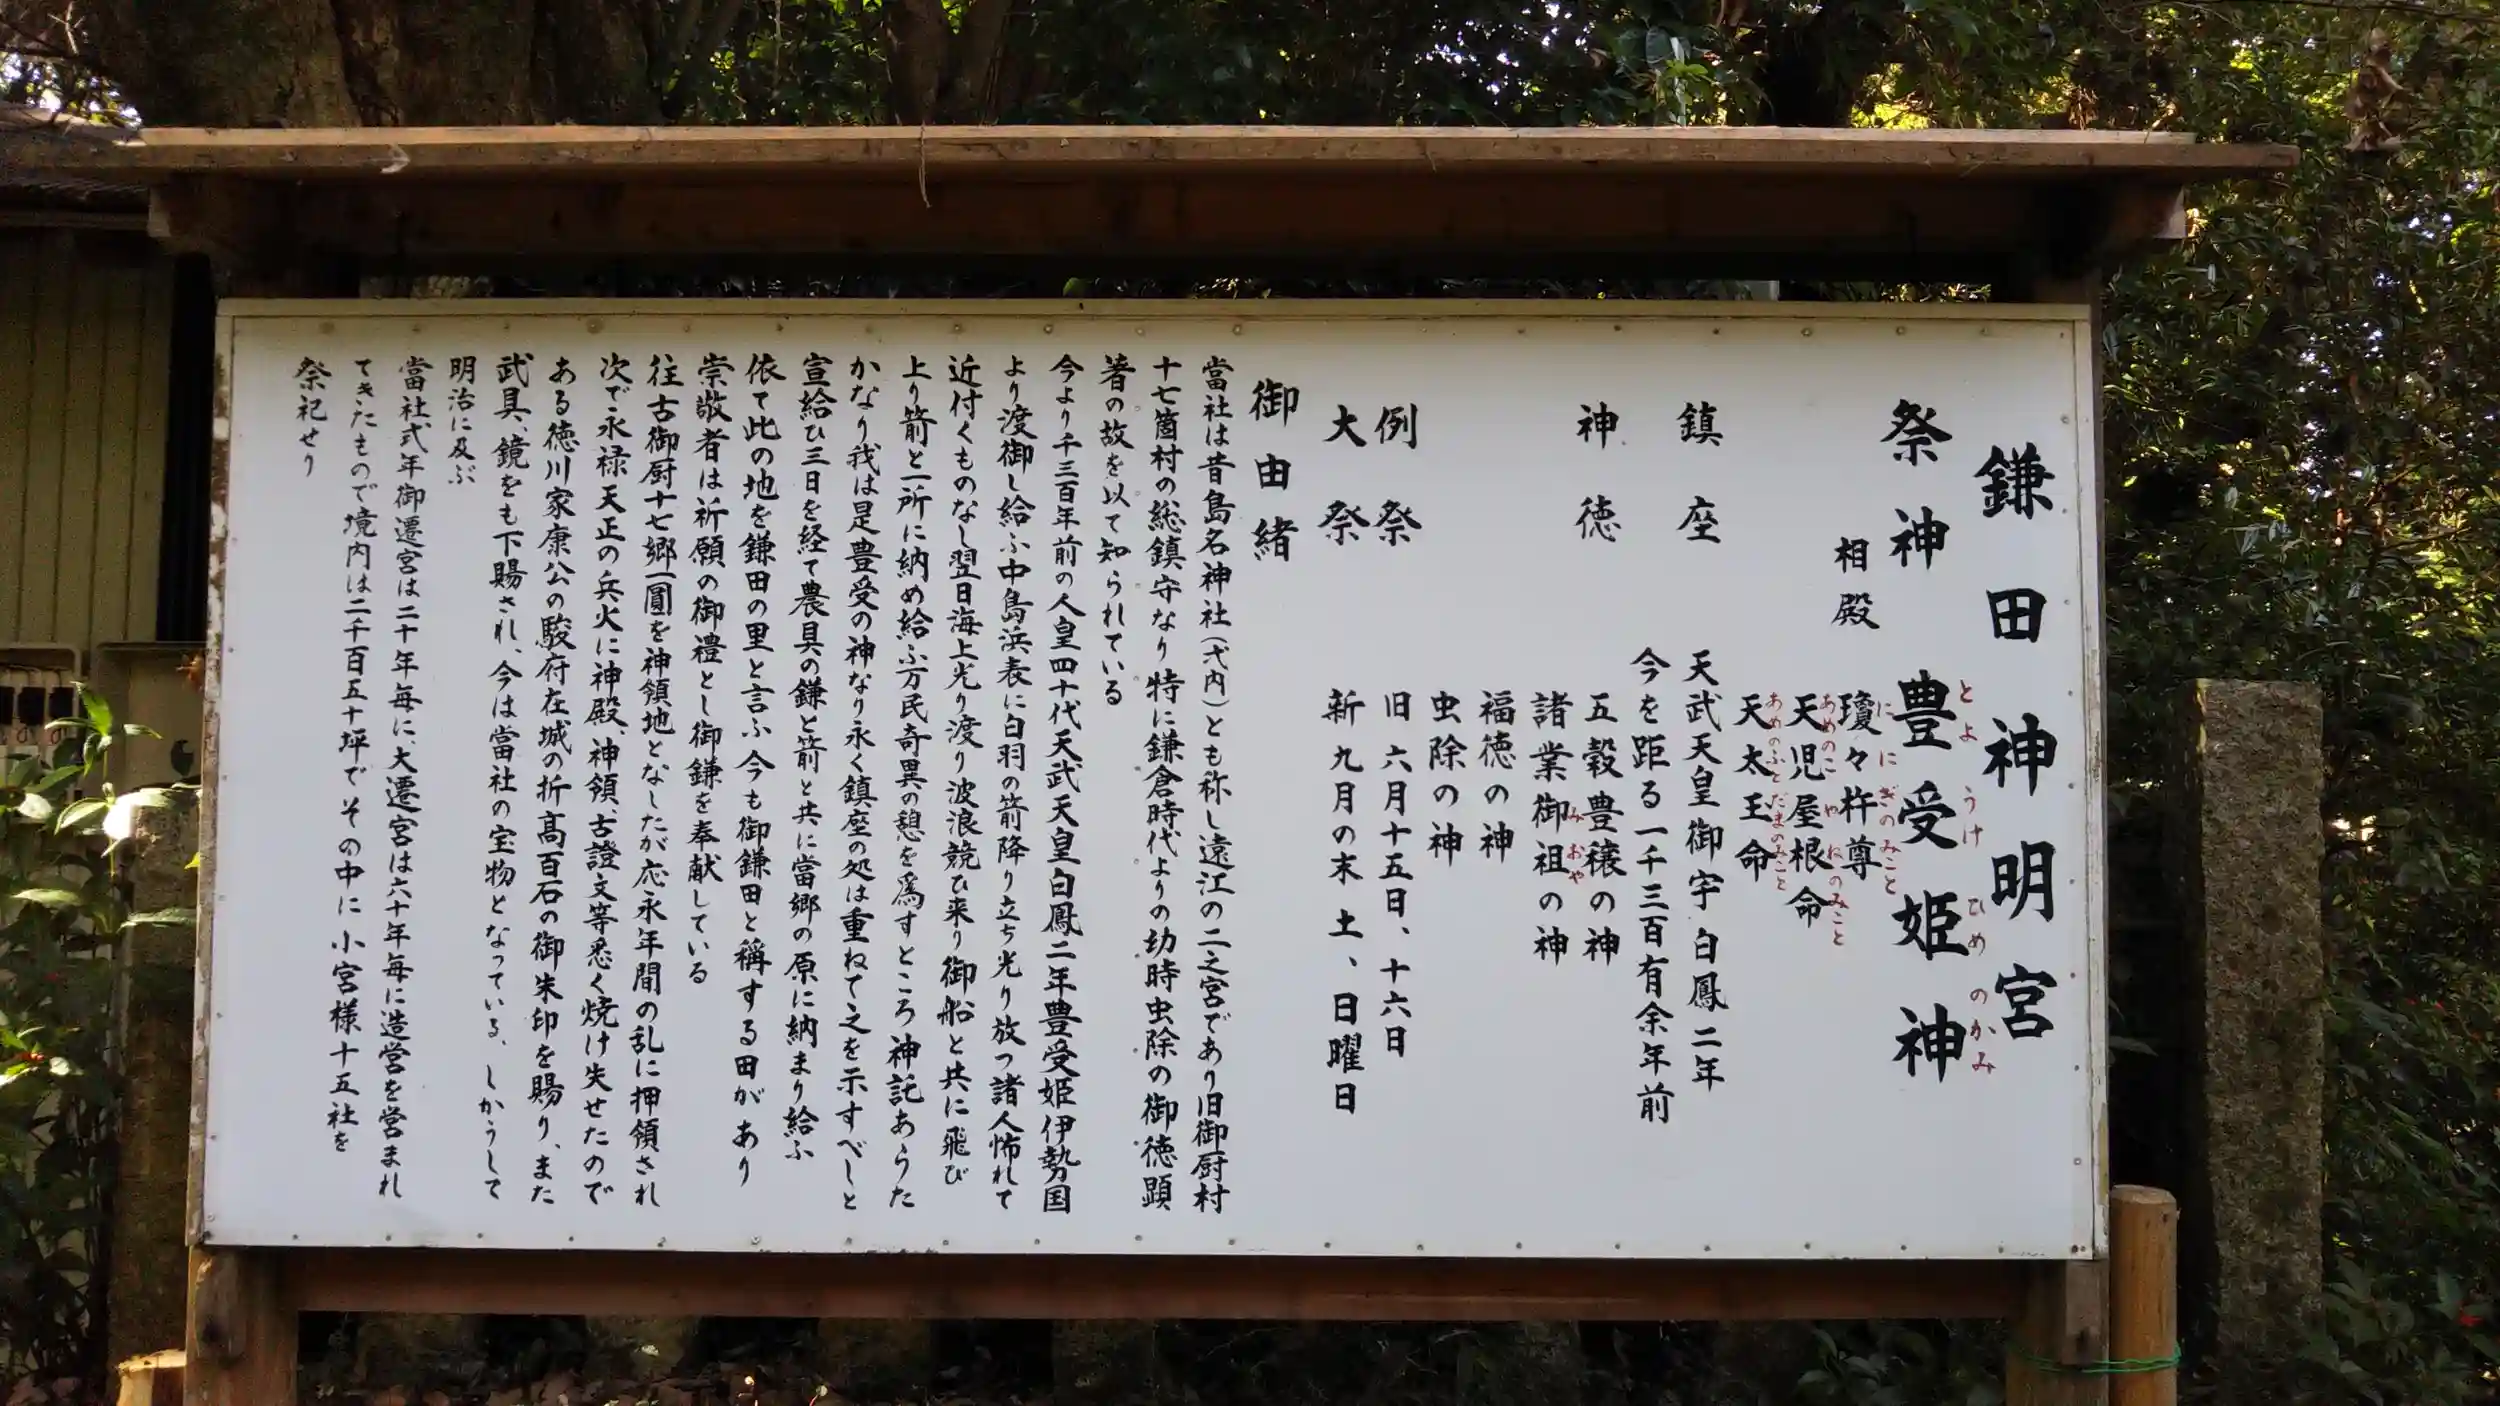 鎌田神明宮
祭神 豊受姫神
とようけひめのかみ
相殿 瓊々杵尊
ににぎのみこと
天児屋根命
あめのこやねのみこと
天太玉命
あめのふとだまのみこと
鎮座 天武天皇御宇白鳳二年
今を距る一千三百有余年前
神徳 五穀豊穣の神
諸業御祖の神
みおや
福徳の神
虫除の神
例祭 旧六月十五日、十六日
大祭 新九月の末土、日曜日
御由緒
當社は昔島名神社(弐内)とも称し遠江の二之宮であり旧御厨村
十七箇村の総鎮守なり特に鎌倉時代よりの幼時虫除の御徳顕
著の故を以て知られている
今より千三百年前の人皇四十代天武天皇白鳳二年豊受姫伊勢国
より渡御し給ふ中島浜表に白羽の箭降り立ち光り放つ諸人怖れて
近付くものなし翌日海上光り渡り波浪競ひ来り御船と共に飛び
上り箭と一所に納め給ふ万民奇異の憩を為すところ神託あらた
かなり我は是豊受の神なり永く鎮座の処は重ねて之を示すべしと
宣給ひ三日を経て農具の鎌と箭と共に當郷の原に納まり給ふ
依て此の地を鎌田の里と言ふ今も御鎌田と稱する田があり
崇敬者は祈願の御禮とし御鎌を奉献している
往古御厨十七郷一圓を神領地となしたが応永年間の乱に押領され
次で永禄天正の兵火に神殿、神領、古證文等悉く焼け失せたので
ある徳川家康公の駿府在城の折高百石の御朱印を賜り、また
武具、鏡をも下賜され、今は當社の宝物となっている、しかうして
明治に及ぶ
當社式年御遷宮は二十年毎に、大遷宮は六十年毎に造営を営まれ
てきたもので境内は二千百五十坪でその中に小宮様十五社を
祭祀せり